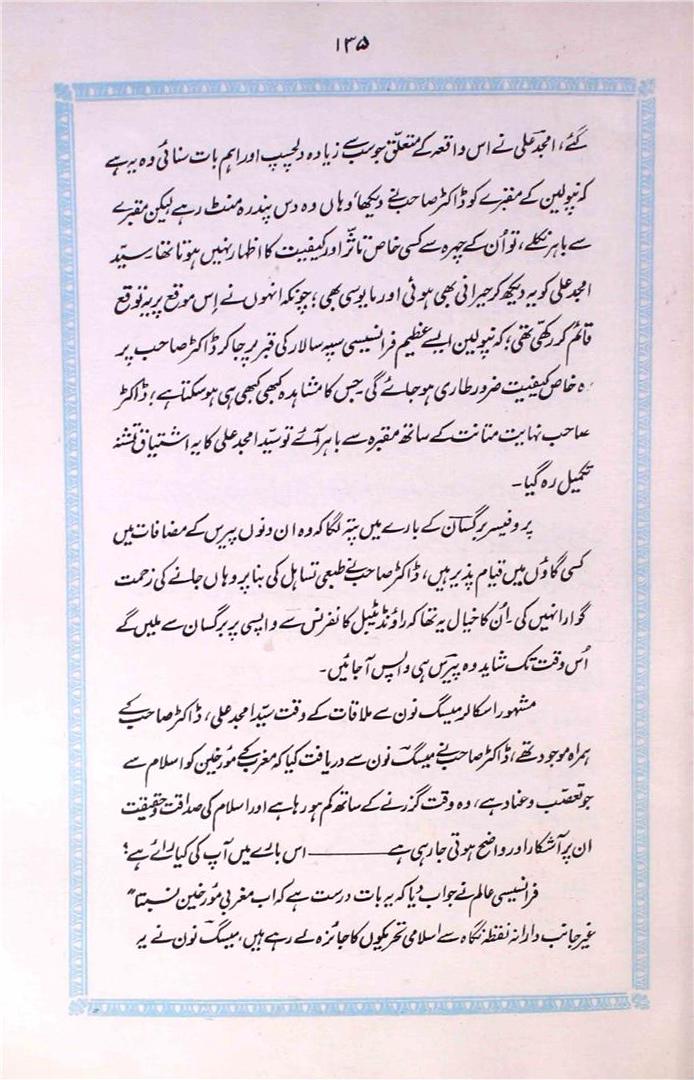 ۱۳۵
گئے، امجد علی نے اس واقعہ کے متعلق جو سب سے زیادہ دلچسپ اور اہم بات سنائی وہ یہ ہے
کہ نپولین کے مقبرے کو ڈاکٹر صاحب نے دیکھا، وہاں وہ دس پندرہ منٹ رہے لیکن مقبرے
سے باہر نکلے، تو اُن کے چہرہ سے کسی خاص تاثّر اور کیفیت کا اظہار نہیں ہوتا تھا۔ سیّد
امجد علی کو یہ دیکھ کر حیرانی بھی ہوئی اور مایوسی بھی؛ چونکہ انہوں نے اِس موقع پر یہ توقع
قائم کر رکھی تھی؛ کہ نپولین ایسے عظیم فرانسیسی سپہ سالار کی قبر پر جا کر ڈاکٹر صاحب پر
وہ خاص کیفیت ضرور طاری ہو جائے گی۔ جس کا مشاہدہ کبھی کبھی ہی ہو سکتا ہے؛ ڈاکٹر
صاحب نہایت متانت کے ساتھ مقبرہ سے باہر آئے تو سیّد امجد علی کا یہ اشتیاق تشنۂ
تکمیل رہ گیا۔
پروفیسر برگسان کے بارے میں پتہ لگا کہ وہ ان دنوں پیرس کے مضافات میں
کسی گاؤں میں قیام پذیر ہیں، ڈاکٹر صاحب نے طبعی تساہل کی بنا پر وہاں جانے کی زحمت
گوارا نہیں کی۔ اُن کا خیال یہ تھا کہ راؤنڈ ٹیبل کانفرنس سے واپسی پر برگسان سے ملیں گے
اُس وقت تک شاید وہ پیرس ہی واپس آ جائیں۔
مشہور اسکالر میسگ نون سے ملاقات کے وقت سیّد امجد علی، ڈاکٹر صاحب کے
ہمراہ موجود تھے، ڈاکٹر صاحب نے میسگ نون سے دریافت کیا کہ مغرب کے مورخین کو اسلام سے
جو تعصّب و عناد ہے، وہ وقت گزرنے کے ساتھ کم ہو رہا ہے اور اسلام کی صداقت و حقیقت
ان پر آشکار اور واضح ہوتی جا رہی ہے ——— اس بارے میں آپ کی کیا رائے ہے؟
فرانسیسی عالم نے جواب دیا کہ یہ بات درست ہے کہ اب مغربی مورخین نسبتاً
غیر جانب دارانہ نقطہ نگاہ سے اسلامی تحریکوں کا جائزہ لے رہے ہیں، میسگ نون نے یہ